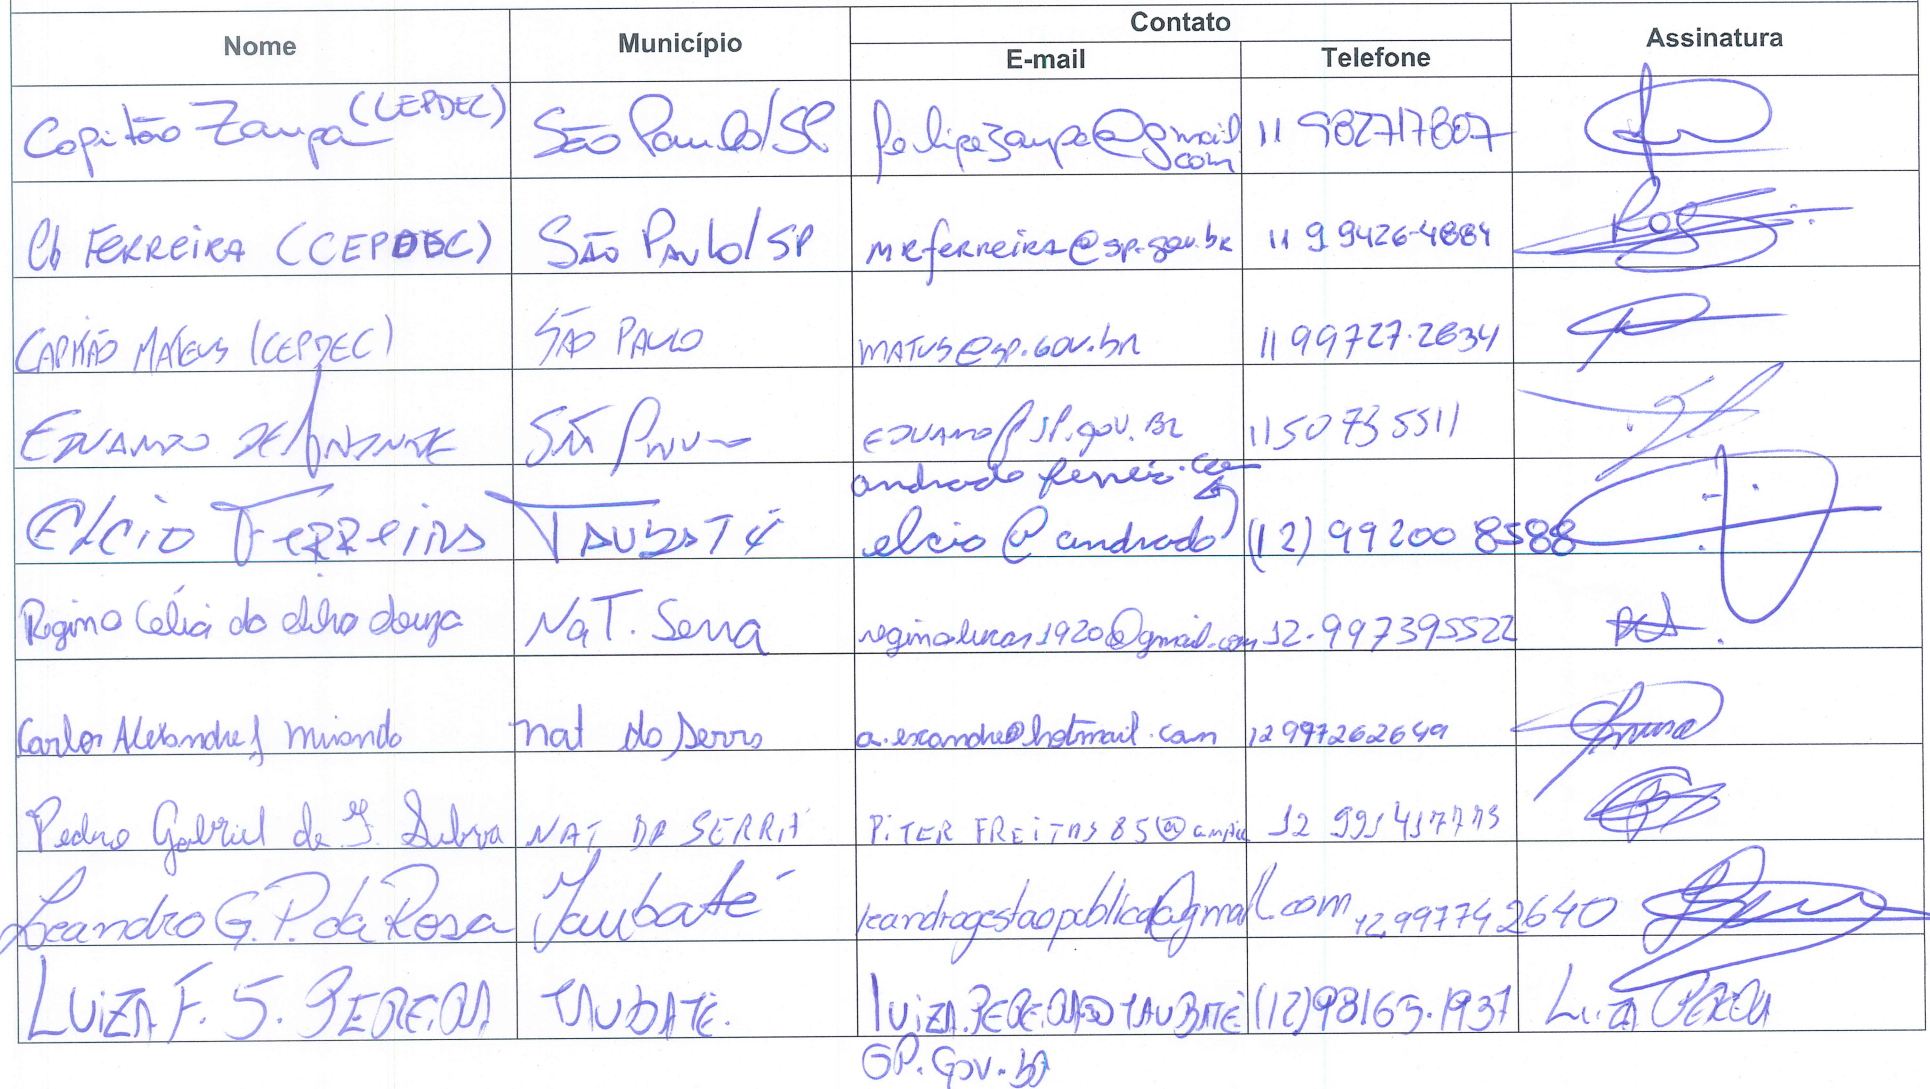 Nome Município Contato Assinatura
E-mail Telefone
Capitão Zampa (CEPDEC) São Paulo/SP felipezampa@gmail.com 11 982717807
Cb FERREIRA (CEPDEC) SÃO PAULO/SP mrferreira@sp.gov.br 11 9 9426-4884
CAPITÃO MATEUS (CEPDEC) SÃO PAULO MATUS@SP.GOV.br 11 99727.2634
EDUARDO DE SÃO PAULO @SP.GOV.BR 1150735511
Elcio FERREIRA TAUBATÉ elcio@andrade (12) 99200 8588
Regina Célia da Souza Nat. Serra reginalucas1920@gmail.com 12.997395522
Carlos Alexandre J Miranda nat da Serra a.exandre@hotmail.com 12997262649
Pedro Gabriel de NAT DA SERRA PITER FREITAS 85@
Leandro G. P. da Rosa Taubaté leandrogestaopublica@gmail.com 12.997742640
LUIZA F. S. PEREIRA TAUBATÉ. LUIZA.PEREIRA@TAUBATÉ (12)98163.1937 LUIZA PEREIRA
SP.Gov.br